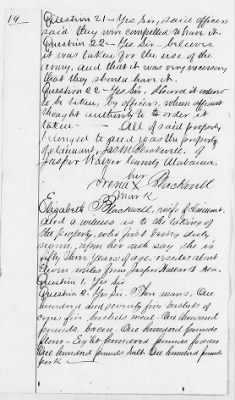 14
Question 21 - Yes Sir, said officer
said they were compelled to have it.
Question 22 - Yes Sir. believes
it was taken for the use of the
army, and that it was very necessary
that they should have it.
Question 22 - Yes Sir. 
to be taken, by officers, whom affiant
thought authority to order it
taken. All of said property
belonged to and was the property
of claimant, Blackwell, of
Jasper Walker County Alabama.
her
X Blackwell
mark
Elizabeth Blackwell, wife of claimant,
and a witness as to the taking of
the property, who first being duly
sworn, upon her oath say she is
fifty years of age. resides about
eleven miles from Jasper
Question 1. Yes Sir
Question 2. Yes Sir. One mare, One
hundred and seventy five bushels of
corn, five bushels meal. One thousand
pounds bacon. One hundred pounds
flour - Eight hundred pounds fodder
One hundred pounds salt. One hundred pounds
pork